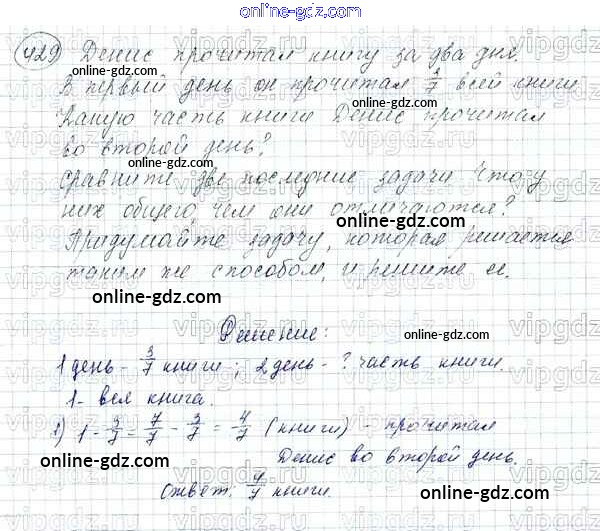 online-gdz.com
429 Денис прочитал книгу за два дня.
В первый день он прочитал 3/7 всей книги
Какую часть книги Денис прочитал
во второй день?
Сравните две последние задачи. Что у
них общего, чем они отличаются?
Придумайте задачу, которая решается
таким же способом, и решите ее.
Решение:
1 день - 3/7 книги; 2 день - ? часть книги.
1 - вся книга.
1) 1 - 3/7 = 7/7 - 3/7 = 4/7 (книги) - прочитал
Денис во второй день.
Ответ: 4/7 книги.
online-gdz.com
online-gdz.com
online-gdz.com
online-gdz.com
online-gdz.com
online-gdz.com
online-gdz.com
online-gdz.com
online-gdz.com